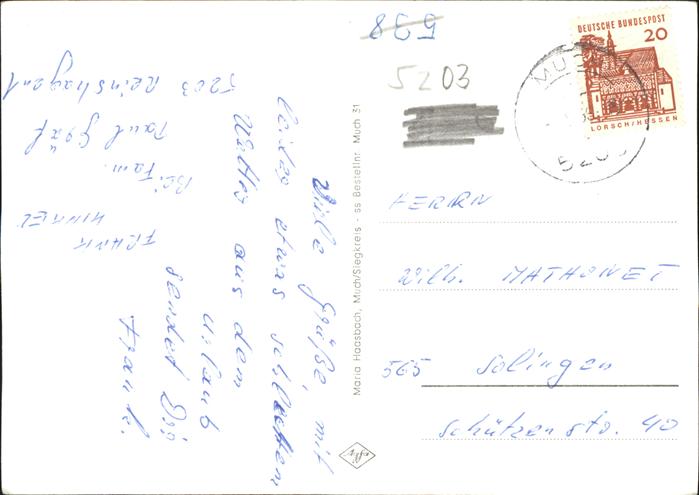 598
5203
DEUTSCHE BUNDESPOST
20
LORSCH/HESSEN
5203
Viele Grüße, mit
leider etwas schlechten
Wetter aus dem
Urlaub
sendet Dir
Frank.
FRANK
HINKEL
Bei Fam.
Paul
5203
Maria Haasbach, Much/Siegkreis - ss Bestellnr. Much 31
HERRN
Wilh. MATHONET
565 Solingen
Schützenstr. 40